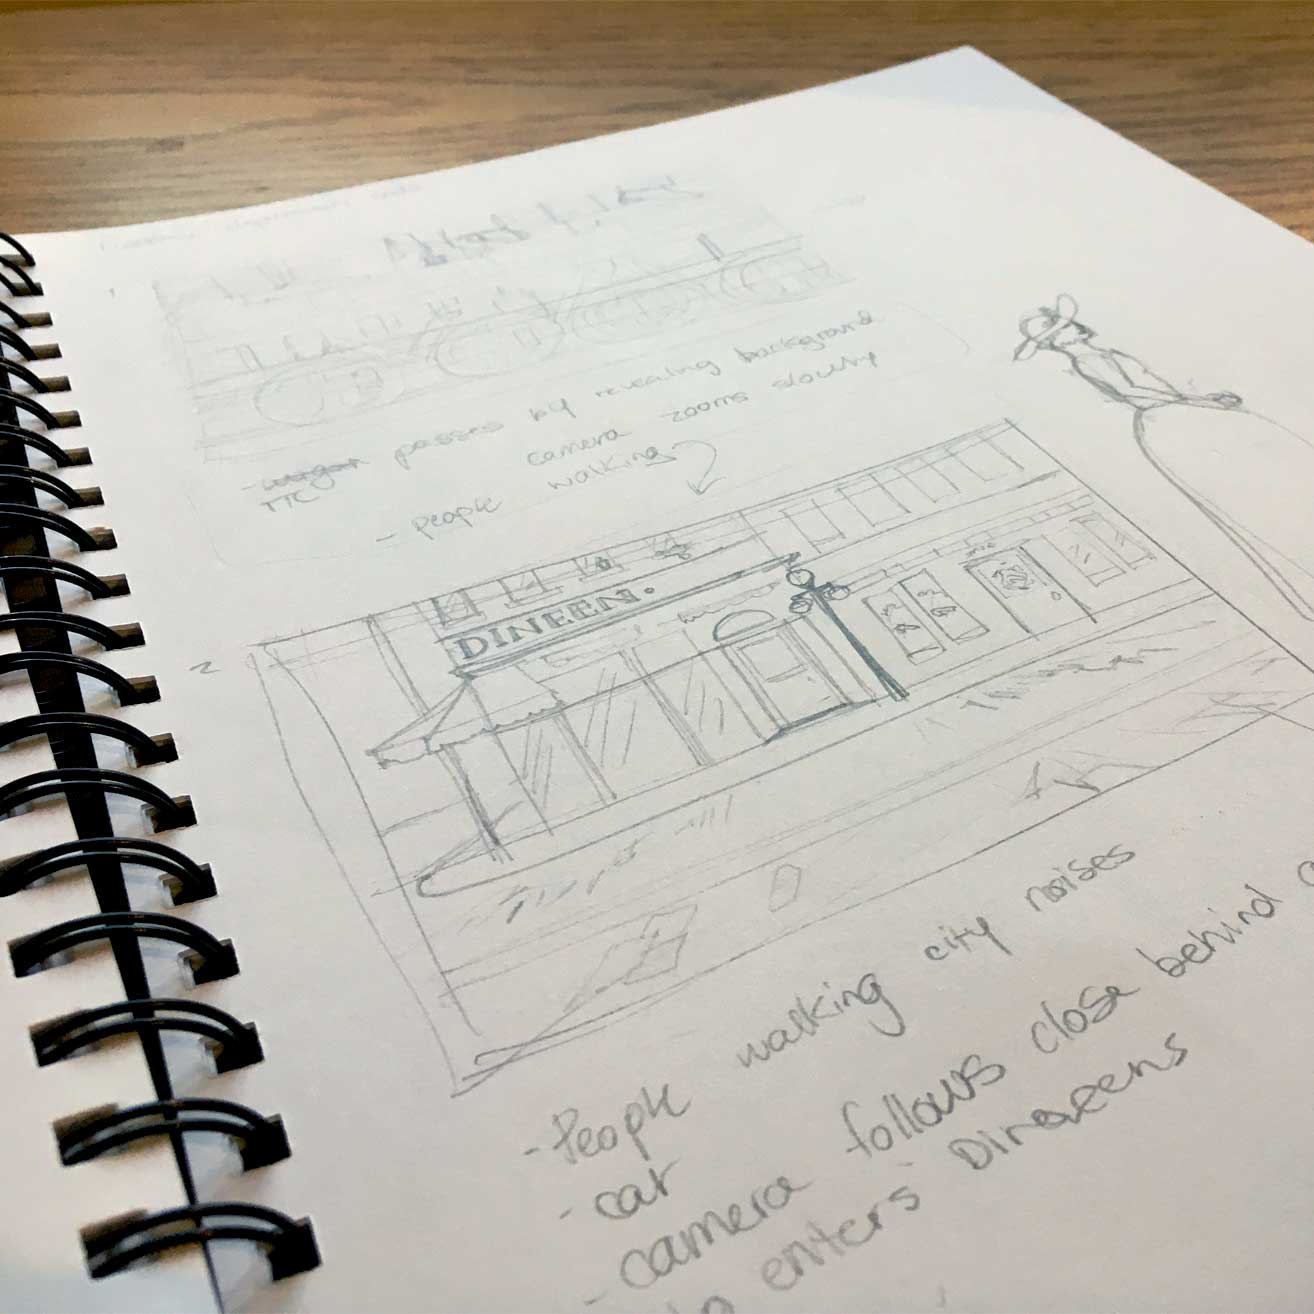 1
- passes by revealing background
TTC
camera zooms slowly
- people walking
2
DINEEN.
- People walking city noises
- cat
- camera follows close behind
enters Dineens